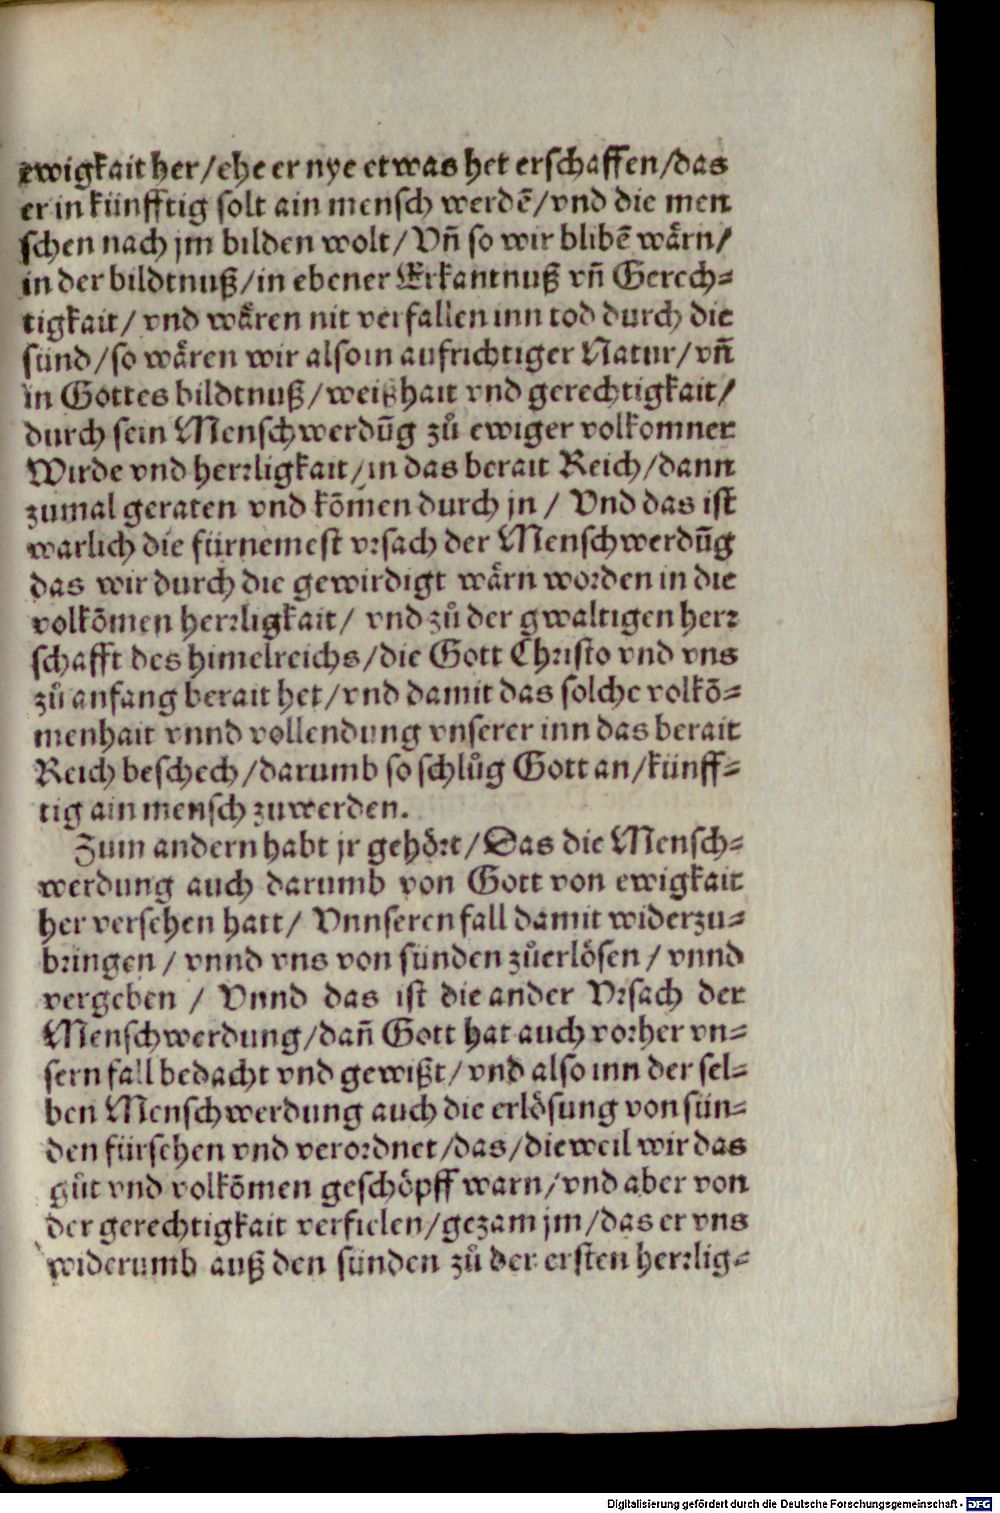 ewigkait her/ehe er nye etwas het erschaffen/das
er in künfftig solt ain mensch werdē/vnd die men
schen nach jm bilden wolt/Vñ so wir blibē wårn/
in der bildtnuß/in ebener Erkantnuß vñ Gerech⸗
tigkait/ vnd wåren nit verfallen inn tod durch die
sünd/so wåren wir also in aufrichtiger Natur/vñ
in Gottes bildtnuß/weißhait vnd gerechtigkait/
durch sein Menschwerdūg zů ewiger volkomner
Wirde vnd herrligkait/in das berait Reich/dann
zumal geraten vnd kōmen durch jn / Vnd das ist
warlich die fürnemest vrsach der Menschwerdūg
das wir durch die gewirdigt wårn worden in die
volkōmen herrligkait/ vnd zů der gwaltigen herr
schafft des himelreichs/die Gott Christo vnd vns
zů anfang berait het/vnd damit das solche volkō⸗
menhait vnnd vollendung vnserer inn das berait
Reich beschech/darumb so schlůg Gott an/künff⸗
tig ain mensch zuwerden.
Zum andern habt jr gehört/Das die Mensch⸗
werdung auch darumb von Gott von ewigkait
her versehen hatt/ Vnnseren fall damit widerzu⸗
bringen / vnnd vns von sünden zůerlösen / vnnd
vergeben / Vnnd das ist die ander Vrsach der
Menschwerdung/dañ Gott hat auch vorher vn⸗
sern fall bedacht vnd gewißt/vnd also inn der sel⸗
ben Menschwerdung auch die erlösung von sün⸗
den fürsehen vnd verordnet/das/dieweil wir das
gůt vnd volkōmen geschöpff warn/vnd aber von
der gerechtigkait verfielen/gezam jm/das er vns
widerumb auß den sünden zů der ersten herrlig⸗
Digitalisierung gefördert durch die Deutsche Forschungsgemeinschaft - DFG